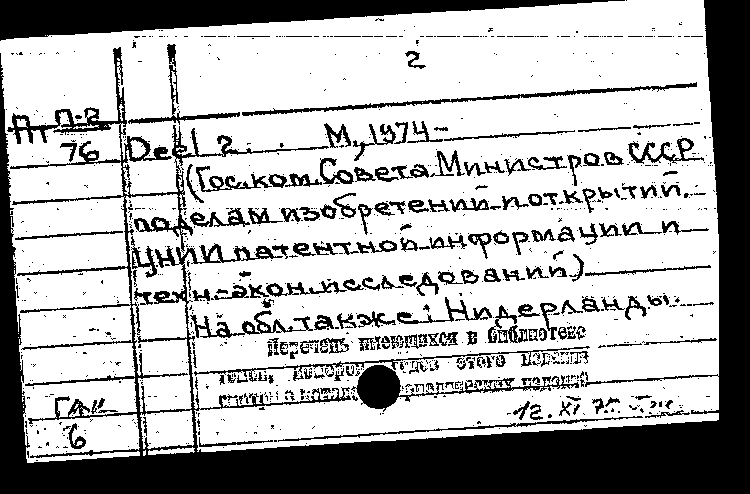 2
П-2
76
Deel 2. . М., 1974-
(Гос. ком. Совета Министров СССР
по делам изобретений и открытий.
ЦНИИ патентной информации и
техн.-экон. исследований)
На обл. также: Нидерланды.
Перечень имеющихся в библиотеке
томов, номеров, этого издания
смотри в издания
6
12. XI